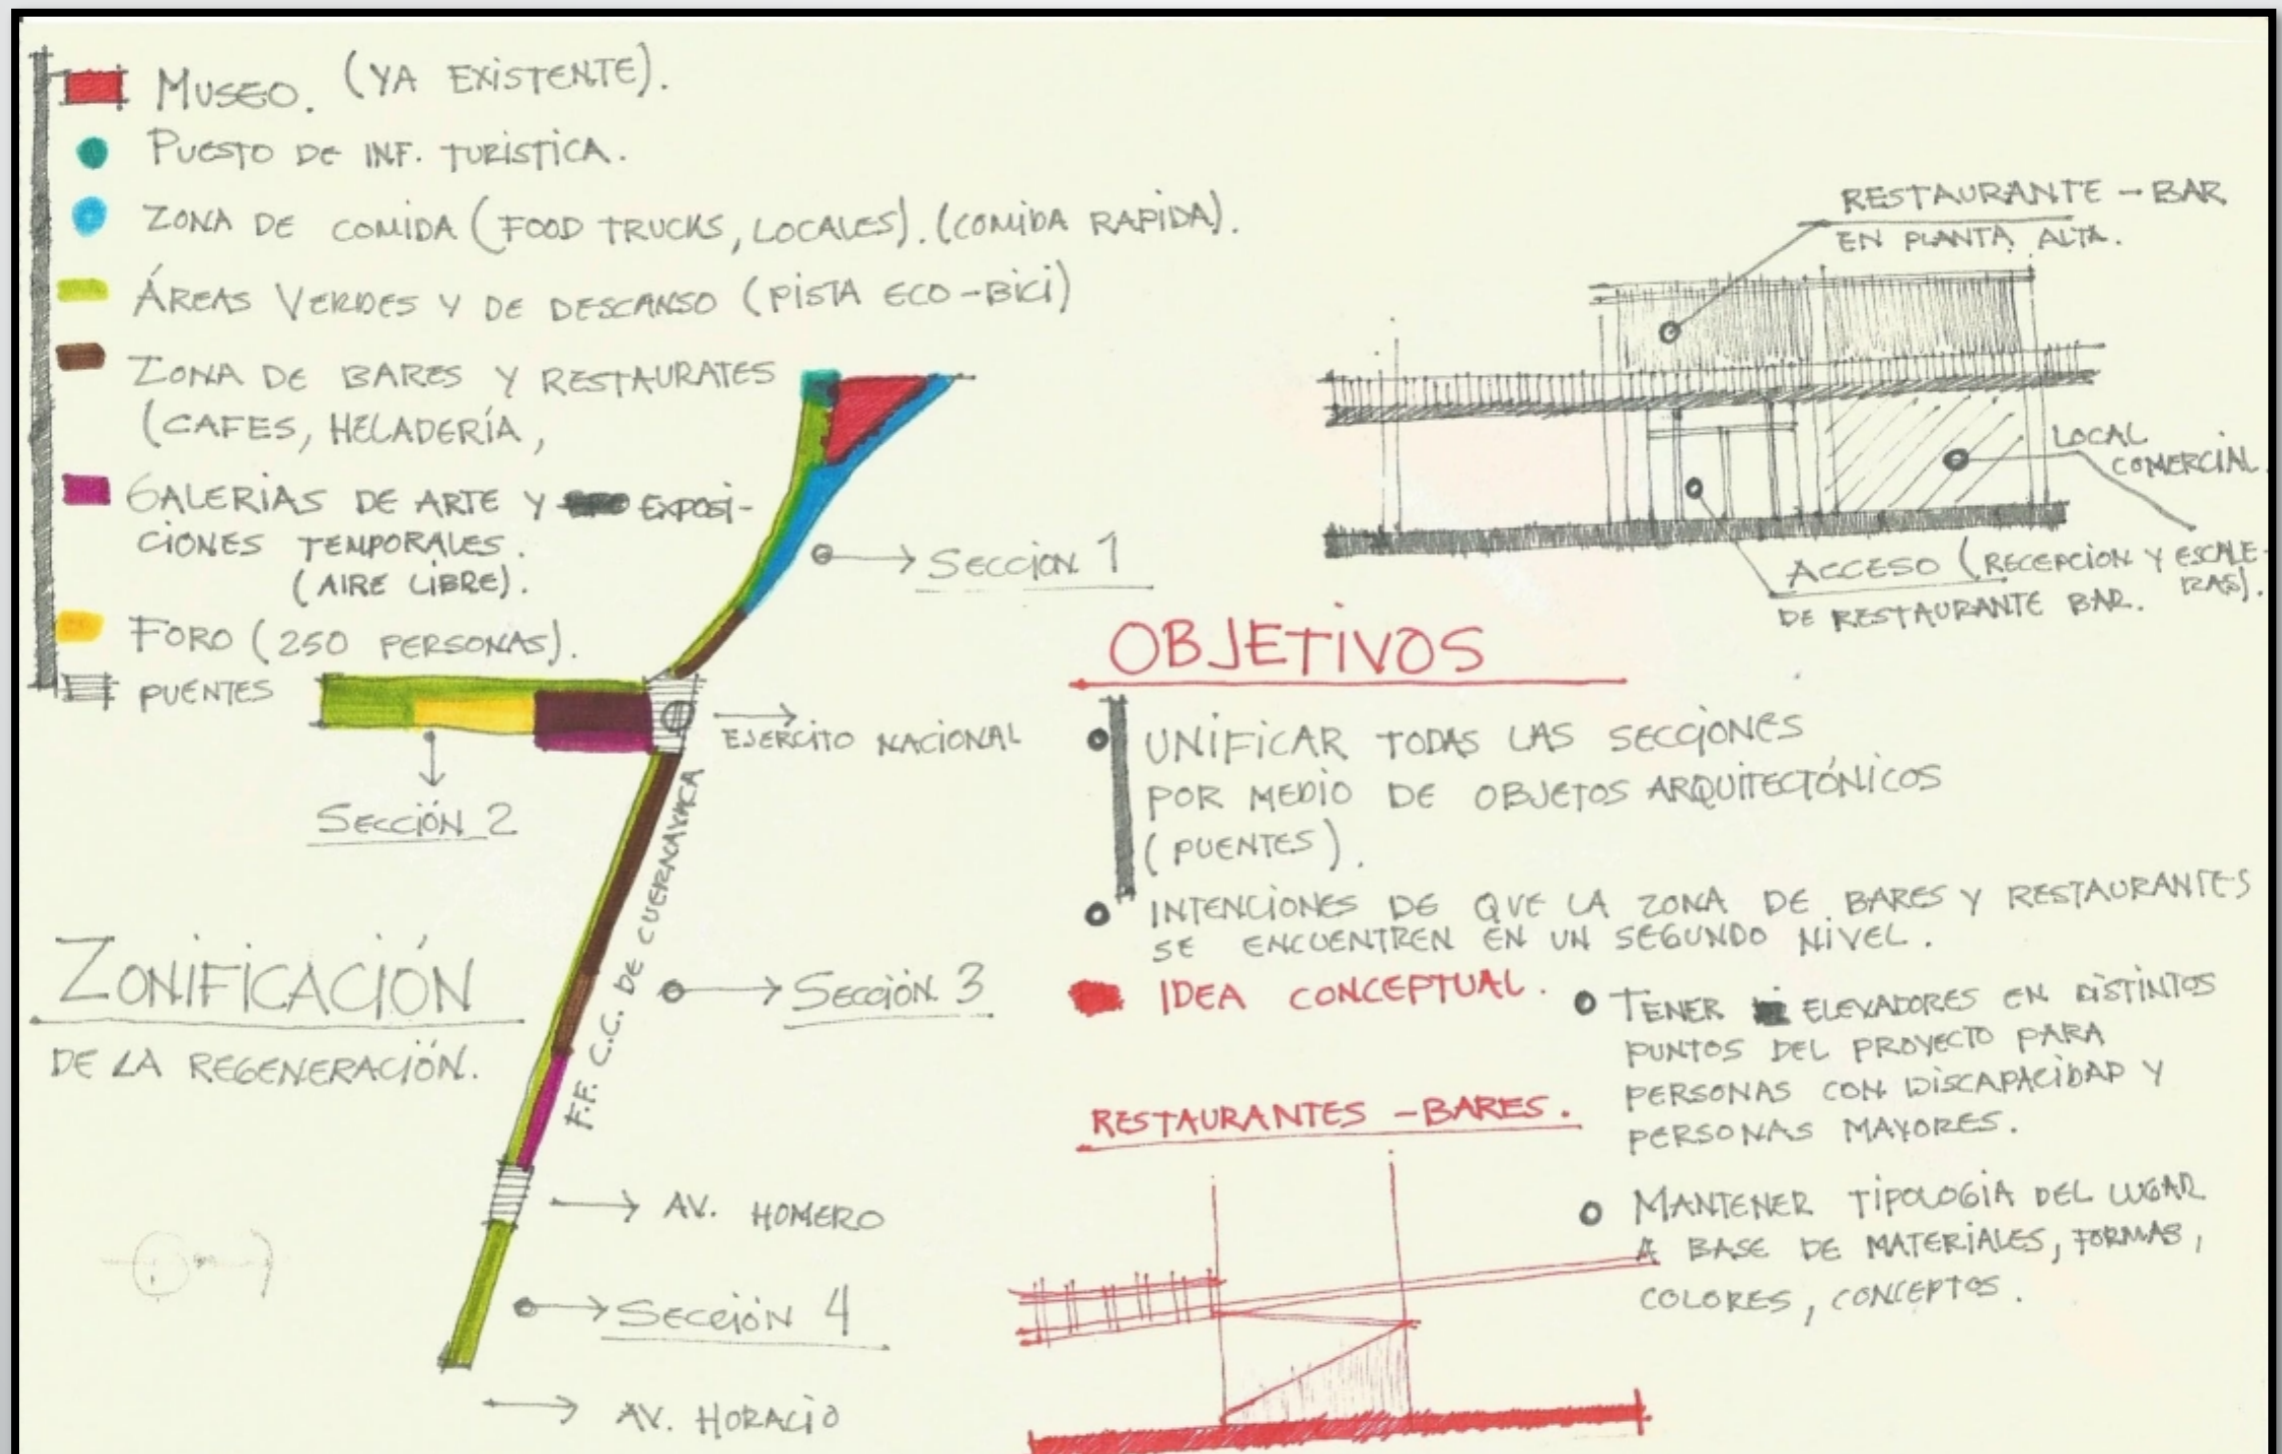 MUSEO. (YA EXISTENTE).
PUESTO DE INF. TURISTICA.
ZONA DE COMIDA (FOOD TRUCKS, LOCALES). (COMIDA RAPIDA).
ÁREAS VERDES Y DE DESCANSO (PISTA ECO-BICI)
ZONA DE BARES Y RESTAURATES
(CAFES, HELADERÍA,
GALERIAS DE ARTE Y EXPOSI-
CIONES TEMPORALES.
(AIRE LIBRE).
FORO (250 PERSONAS).
PUENTES
SECCIÓN 1
EJERCITO NACIONAL
SECCIÓN 2
F.F. C.C. DE CUERNAVACA
SECCIÓN 3
ZONIFICACIÓN
DE LA REGENERACIÓN.
AV. HOMERO
SECCIÓN 4
AV. HORACIO
RESTAURANTE - BAR
EN PLANTA ALTA.
LOCAL
COMERCIAL
ACCESO (RECEPCION Y ESCALE-
RAS).
DE RESTAURANTE BAR.
OBJETIVOS
UNIFICAR TODAS LAS SECCIONES
POR MEDIO DE OBJETOS ARQUITECTÓNICOS
(PUENTES).
INTENCIONES DE QUE LA ZONA DE BARES Y RESTAURANTES
SE ENCUENTREN EN UN SEGUNDO NIVEL.
IDEA CONCEPTUAL.
TENER ELEVADORES EN DISTINTOS
PUNTOS DEL PROYECTO PARA
PERSONAS CON DISCAPACIDAD Y
PERSONAS MAYORES.
RESTAURANTES - BARES.
MANTENER TIPOLOGIA DEL LUGAR
A BASE DE MATERIALES, FORMAS,
COLORES, CONCEPTOS.